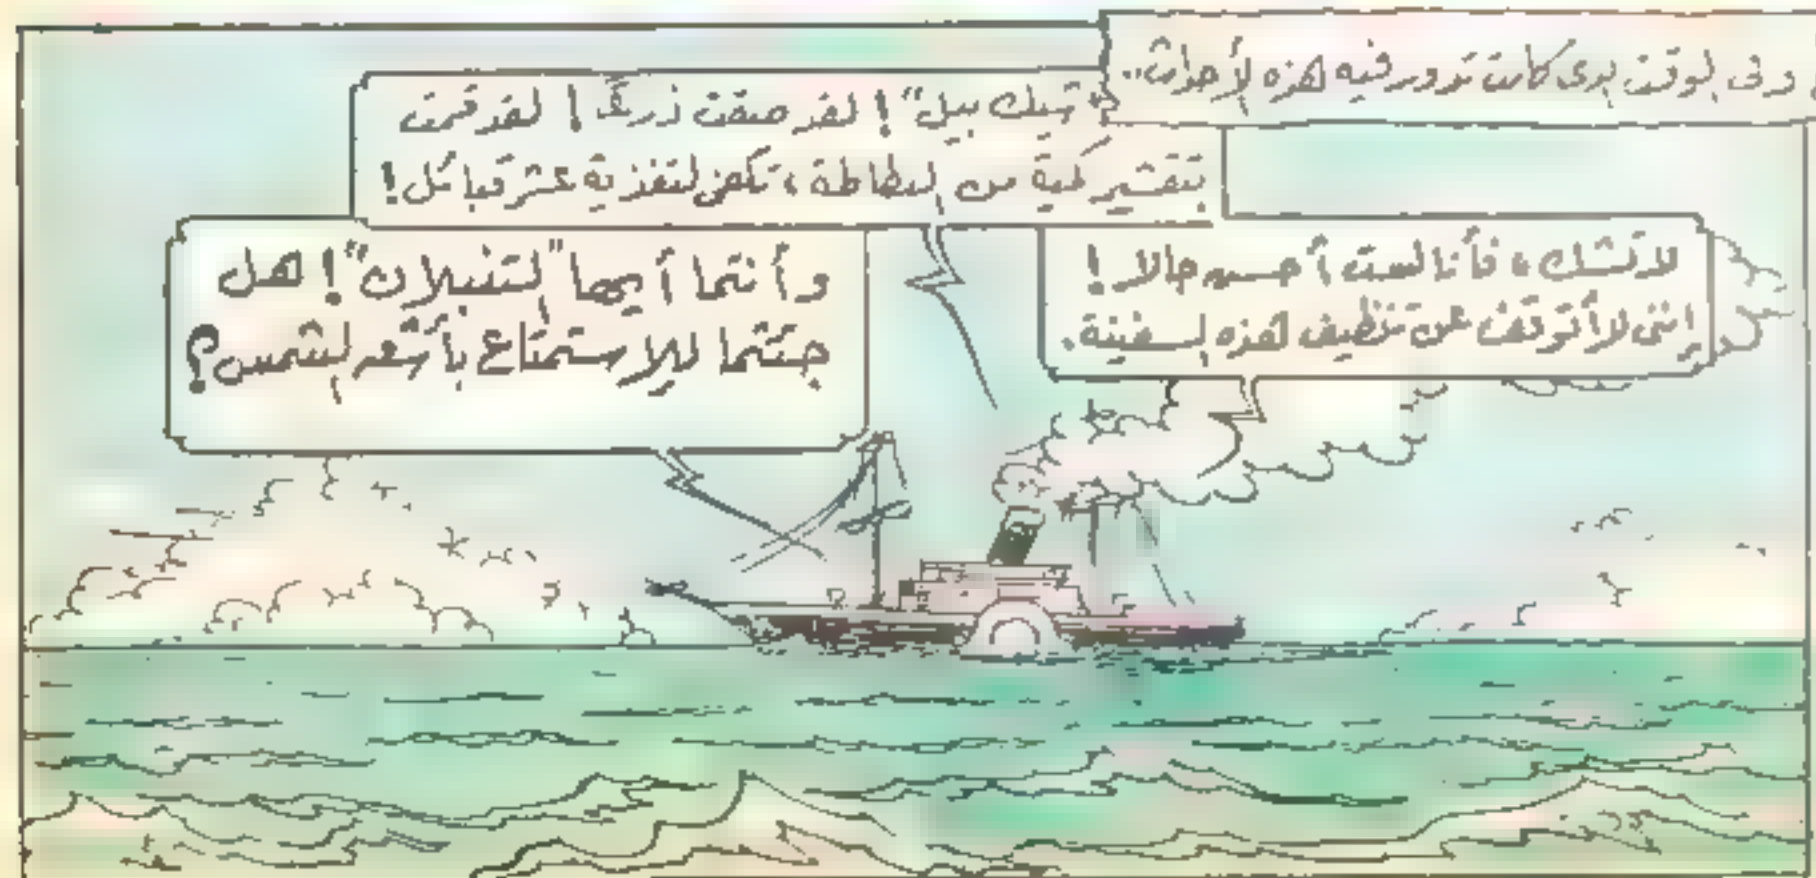 وفى الوقت الذى كانت تدور فيه هذه الأحداث..
"تيك بيل"! لقد ضقت ذرعًا! لقد قمت
بتقشير كمية من البطاطة، تكفى لتغذية عشر قبائل!
لا تشك، فأنا لست أحسن حالا!
إننى لا أتوقف عن تنظيف هذه السفينة.
وأنتما أيها "التنبلان"! هل
جئتما للاستمتاع بأشعة الشمس؟